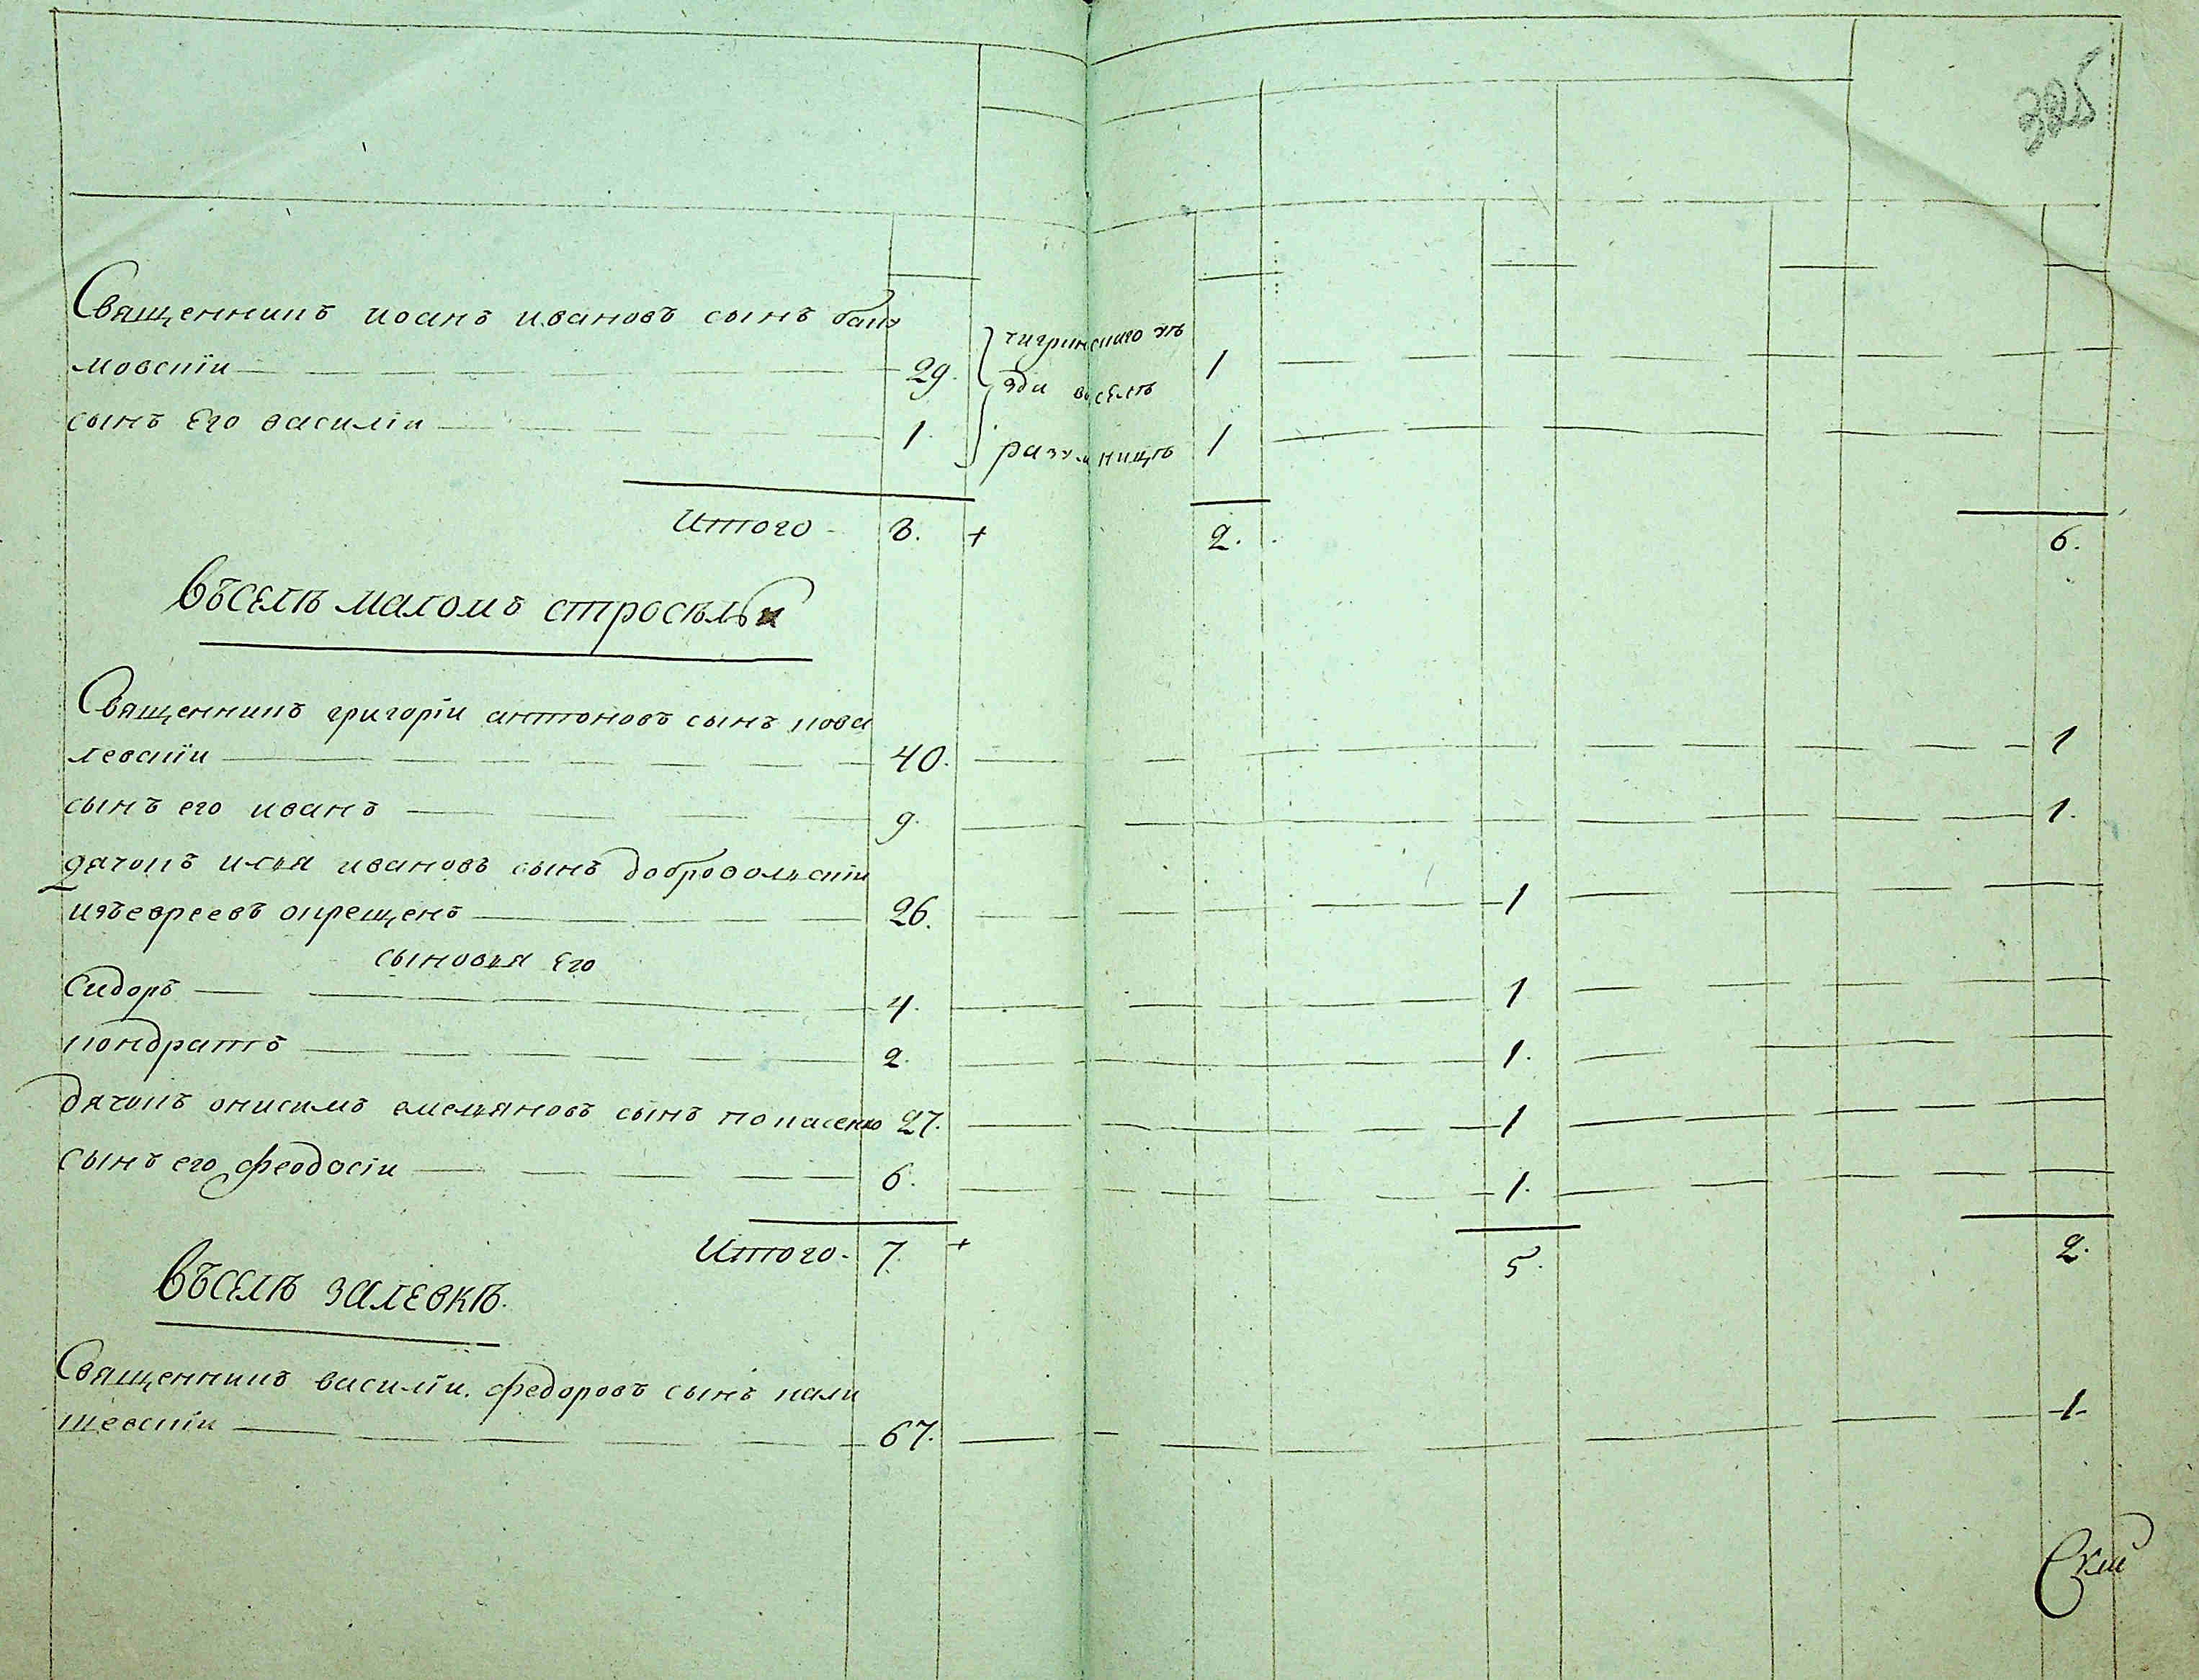 325
Священникъ иоанъ ивановъ сынъ баи
мовскiи 29. чигринскаго уѣ 1
зди вьселѣ
сынъ его василiи 1. разумницѣ 1
Итого 8. + 2. 6.
Въселѣ маломъ стросѣльи
Священникъ григорiи антоновъ сынъ кова
левскiи 40. 1
сынъ его иванъ 9. 1.
дячокъ илья ивановъ сынъ добровольскiи
изъевреевъ окрещенъ 26. 1
сыновья его
Сидоръ 4. 1
кондратъ 2. 1.
дячокъ онисимъ емельяновъ сынъ попасенко 27. 1
сынъ его феодосiи 6. 1.
Итого 7. + 5. 2.
Въселѣ залевкѣ.
Священникъ василiи федоровъ сынъ кали
шевскiи 67. 1